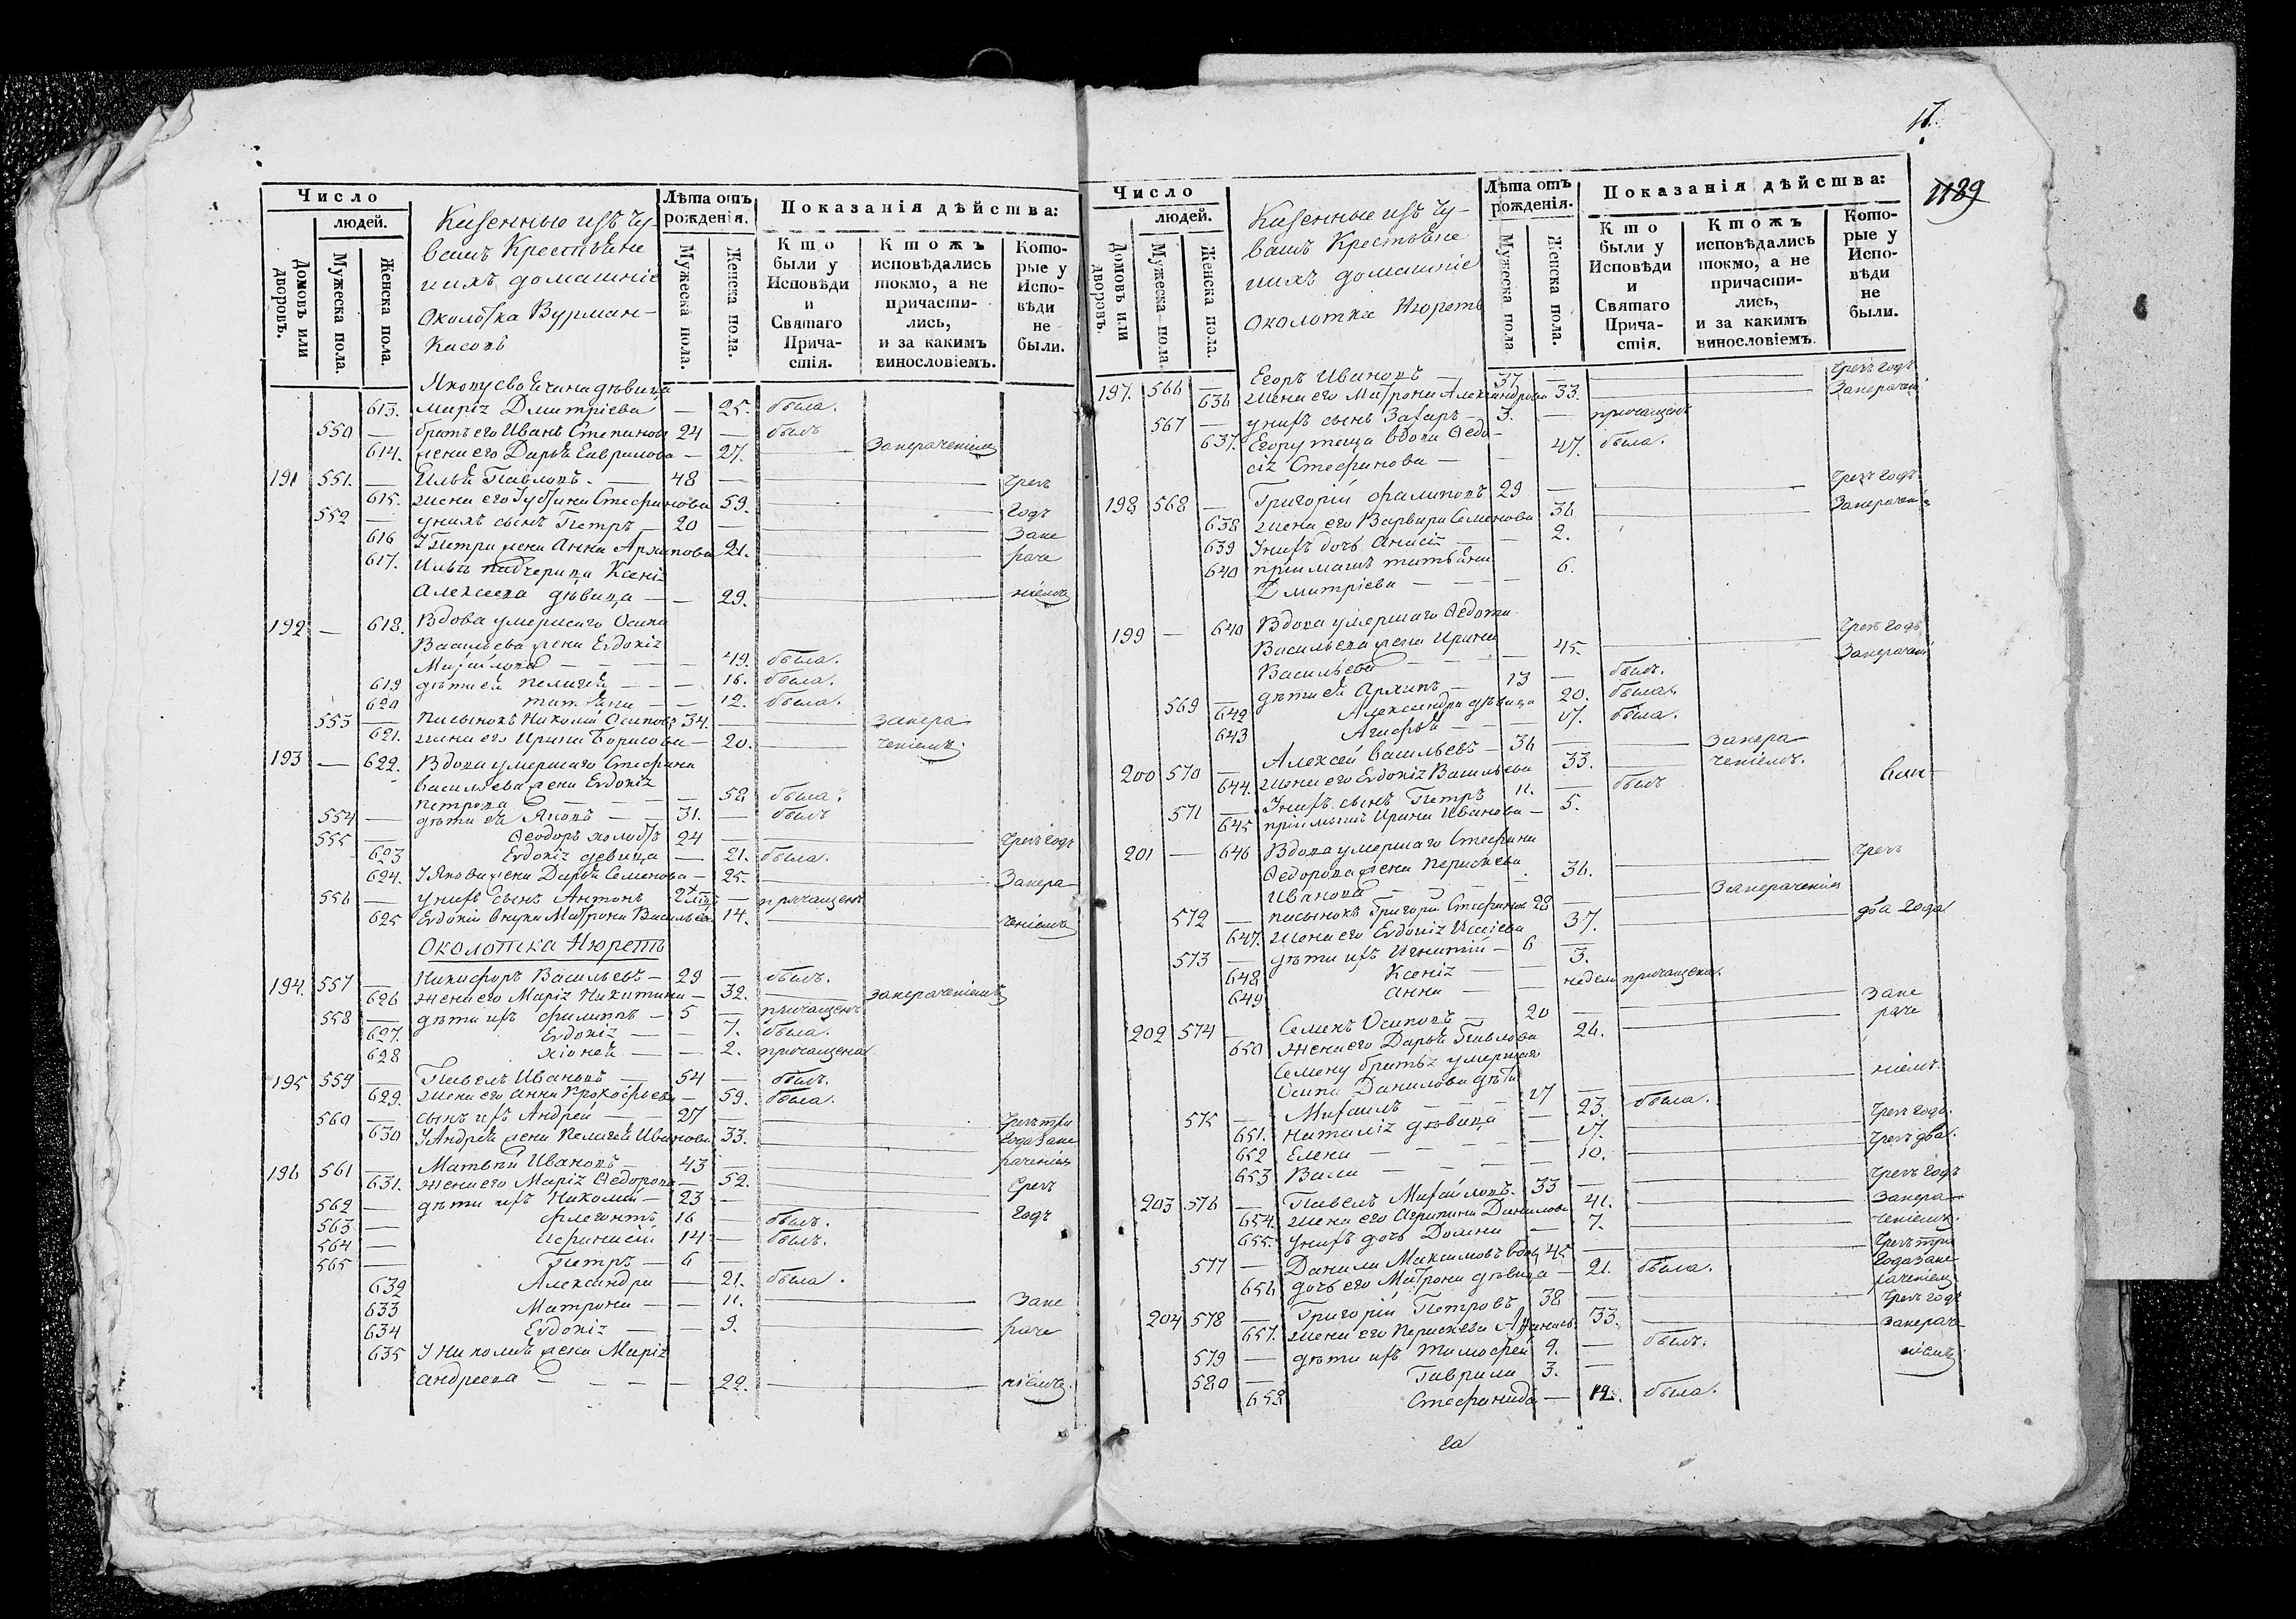 Число
людей.
Домовъ или дворовъ.
Мужеска пола.
Женска пола.
Казенные изъ Чу-
вашъ Крестьяне
и ихъ домашніе
Околотка Вурман-
Касовъ
Лѣта отъ рожденія.
Мужеска пола.
Женска пола.
Показанія дѣйства:
Кто были у Исповѣди и Святаго Причастія.
Ктожъ исповѣдались токмо, а не причастились, и за какимъ винословіемъ.
Которые у Исповѣди не были.
Якову дѣвица
613. Маріz Дмитріева — 25. была.
550 — братъ его Иванъ Степановъ 24 — былъ
614. жена его Дарья Гаврилова — 27. Занераченіемъ
191 551. — Илья Павловъ. — 48 — Чрезъ
615. жена его Стефанова 59. годъ
552 — у нихъ сынъ Петръ — 20 — Зане
616 У Петра жена Анна Архипова 21. раче
617. Ильѣ падчерица Ксеніz
Алексеева дѣвица — — 29. ніемъ
192 — 618. Вдова умершаго Осипа
Васильева жена Евдокіz
Михайлова — — — 49. была.
619 дѣти ея Пелагея — — 16. была.
620 татьяна — — 12. была.
553 — пасынокъ Николай Осиповъ 34. — занера
621. жена его Ирина Борисова — 20. — ченіемъ.
193 — 622. Вдова умершаго Стефана
Васильева жена Евдокіz
петрова — — — 58 была.
554 — дѣти ея Яковъ — — 31. — былъ
555 — Ѳеодоръ холостъ 24 — Чрезъ годъ
623 Евдокіz девица — 21. была.
624. У Якова жена Дарья Семенова — 25. Занера
556 — у нихъ сынъ Антонъ 2 — причащенъ
625 Евдокіи внука Матрона Васильева 14. ченіемъ
Околотка Нюретъ
194. 557 — Никифоръ Васильевъ — 29 — былъ.
626 жена его Маріz Никитина — 32. занераченіемъ
558 — дѣти ихъ филиппъ — 5 — причащенъ
627. Евдокіz — — 7. была.
628 хіонея — — 2. причащена
195 559 — Павелъ Ивановъ — 54 — былъ.
629. жена его анна Прокофьева — 59. была.
560 — сынъ ихъ Андрей — — 27 — Чрезъ три
630 У Андрея жена Пелагея Иванова 33. года зане
196 561 — Матвѣй Ивановъ — 43 — раченіемъ
631. жена его Маріz Ѳедорова — 52. Чрезъ
562 — дѣти ихъ Николай — 23 — годъ
563 — флегонтъ 16 — былъ.
564 — Афанасій 14 — былъ.
565 — Петръ — 6 —
632 Александра — 21. была.
633 Матрона — — 11. Зане
634 Евдокіz — — 9. раче
635 У Николая жена Маріz
андреева — — — 22. ніемъ.
17.
1189
Число
людей.
Домовъ или дворовъ.
Мужеска пола.
Женска пола.
Казенные изъ Чу-
вашъ Крестьяне
и ихъ домашніе
Околотка Нюретъ
Лѣта отъ рожденія.
Мужеска пола
Женска пола.
Показанія дѣйства:
Кто были у Исповѣди и Святаго Причастія.
Ктожъ исповѣдались токмо, а не причастились, и за какимъ винословіемъ.
Которые у Исповѣди не были.
197. 566 — Егоръ Ивановъ — 37 — Чрезъ годъ
636 жена его Матрона Александрова 33. Занерачен
567 — у нихъ сынъ Захаръ — 3. — причащенъ
637. Егору теща вдова Ѳедо-
сіz Стефанова — — 47. была.
198 568 — Григорій филиповъ 29 — Чрезъ годъ.
638 жена его Варвара Семенова 36 Занераченіе
639 У нихъ дочь Анисіz — — 2.
640 пріимышъ татьяна
Дмитріева — — — 6.
199 — 640 Вдова умершаго Ѳедота
Васильева жена Ирина
Васильева — — — 45. Чрезъ годъ
569 — дѣти ея Архипъ — 13 — былъ. Занерачен
642 Александра дѣвица 20. была.
643 Агафья — — 17. была.
200 570 — Алексей Васильевъ — 36 — занера
644. жена его Евдокіz Васильева 33. ченіемъ.
571 — У нихъ сынъ Петръ 11. — былъ
645 пріимышъ Ирина Иванова — 5.
201 — 646 Вдова умершаго Стефана
Ѳедорова жена Перасkева
Иванова — — — 36. Чрезъ
572 — пасынокъ Григорій Стефановъ 28 — Занераченіемъ
647. жена его Евдокіz 37. два года
573 — дѣти ихъ Игнатій — 6 —
648 Ксеніz — — 3.
649 анна — — недели причащена.
202 574 — Семенъ Осиповъ — 20 — Зане
650 Жена его Дарья Павлова 26. раче
Семену братьz умершаго
Осипа Данилова дѣти ніемъ.
575 — Михаилъ — — — 17 —
651. наталіz дѣвица — 23. была.
652 Елена — — — 17. Чрезъ годъ.
653 Васа — — — 10. Чрезъ два.
203 576 — Павелъ Михайловъ. 33 — Чрезъ годъ
654. жена его Агрипина Данилова 41. занера
655. У нихъ дочь Домна — 7. ченіемъ.
577 — Данила Максимовъ вдов 45 — Чрезъ три
656 дочь его Матрона дѣвица — 21. была. года зане
раченіем
204 578 — Григорій Петровъ 38 — Чрезъ годъ
657. жена его Перасkева Афанась. 33. занера
579 — дѣти ихъ Тимофей 9. — былъ. ніемъ
580 — Гаврила 3. —
658 Стефанида — 12. была.